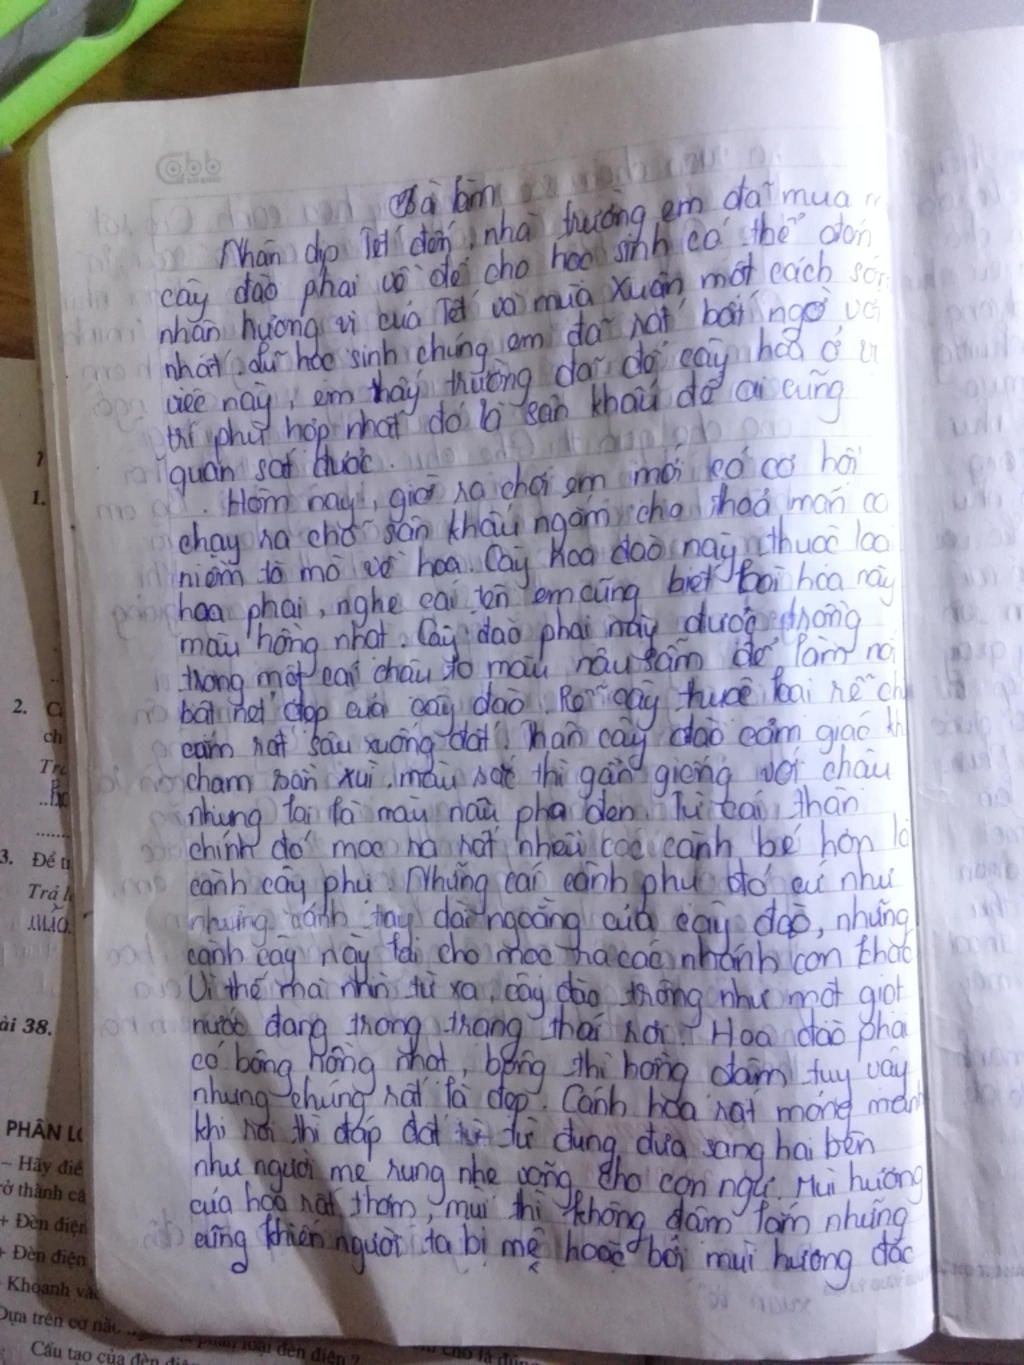 Cabb
Bài làm
Nhân dịp Tết đến, nhà trường em đã mua
cây đào phai về để cho học sinh có thể đón
nhận hương vị của Tết và mùa xuân một cách sớm
nhất. dù học sinh chúng em đã rất bất ngờ với
việc này, em thấy trường đã để cây hoa ở vị
trí phù hợp nhất đó là sân khấu để ai cũng
quan sát được.
Hôm nay, giờ ra chơi em mới có cơ hội
chạy ra chỗ sân khấu ngắm cho thoả mãn cơ
niềm tò mò về hoa. Cây hoa đào này thuộc loại
hoa phai, nghe cái tên em cũng biết loài hoa này
màu hồng nhạt. Cây đào phai này được trồng
trong một cái chậu to màu nâu sẫm để làm nổi
bật nét đẹp của cây đào. Rễ cây thuộc loại rễ chù
cắm rất sâu xuống đất. Thân cây đào cảm giác kh
chạm sần xùi. màu sắc thì gần giống với chậu
nhưng lại là màu nâu pha đen. Từ cái thân
chính đó mọc ra rất nhều các cành bé hơn là
cành cây phụ. Những cái cành phụ đó cứ như
những cánh tay dài ngoằng của cây đào, những
cành cây này lại cho mọc ra các nhánh con khác
Vì thế mà nhìn từ xa, cây đào trông như một giọt
nước đang trong trạng thái rơi. Hoa đào phai
có bông hồng nhạt, bông thì hồng đậm tuy vậy
nhưng chúng rất là đẹp. Cánh hoa rất mỏng manh
khi rơi thì đáp đất từ từ đung đưa sang hai bên
như người mẹ rung nhẹ võng cho con ngủ. Mùi hương
của hoa rất thơm, mùi thì không đậm lắm nhưng
cũng khiến người ta bị mê hoặc bởi mùi hương đặc
1.
2.
3. Để
Trả l
ài 38.
PHÂN L
– Hãy điề
rở thành cá
+ Đèn điện
+ Đèn điện
Khoanh và
Dựa trên cơ
phân loại đèn điện ?
Cấu tạo của đèn điện